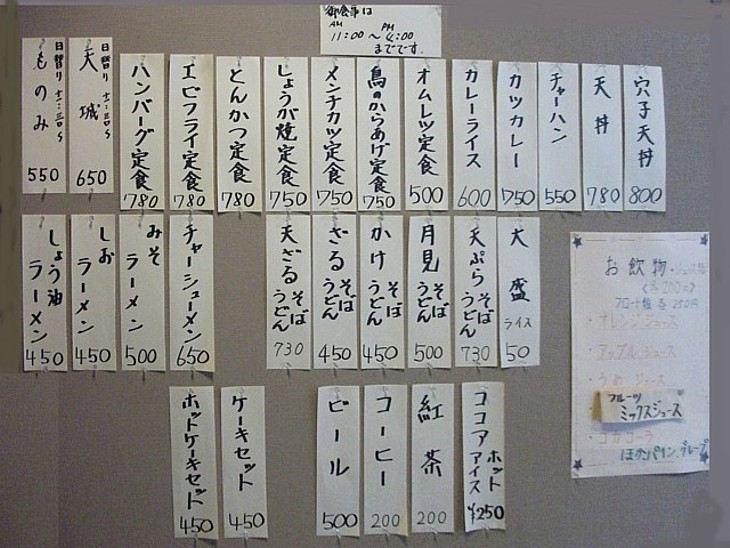 御食事は
AM 11:00 ～ PM 4:00
までです。
穴子天丼 800
天丼 780
チャーハン 550
カツカレー 750
カレーライス 600
オムレツ定食 500
鳥のからあげ定食 750
メンチカツ定食 750
しょうが焼定食 750
とんかつ定食 780
エビフライ定食 780
ハンバーグ定食 780
日替り 十一:三〇～
天城 650
日替り 十一:三〇～
ものみ 550
大盛ライス 50
天ぷらそばうどん 730
月見そばうどん 500
かけそばうどん 450
ざるそばうどん 450
天ざるそばうどん 730
チャーシューメン 650
みそラーメン 500
しおラーメン 450
しょう油ラーメン 450
ココア ホット アイス ¥250
紅茶 200
コーヒー 200
ビール 500
ケーキセット 450
ホットケーキセット 450
お飲物・ジュース類
(各200円)
フロート類 各250円
・オレンジジュース
・アップルジュース
・うめジュース
フルーツ
ミックスジュース
・コカコーラ
ほかパイン、グレープ